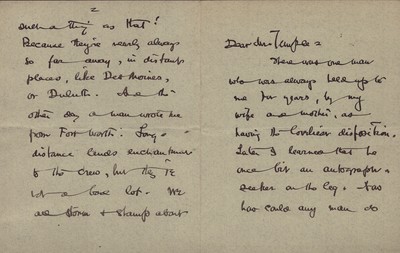 Dear Mr.
There was one man
who was always held up to
me for years, by my
wife and mother, as
having the loveliest disposition.
Later I learned that he
once bit an autograph-
seeker on the leg.
how could any man do
2
such a thing as that?
Because they're nearly always
so far away, in distant
places, like Des Moines,
or Duluth. And the
other day a man wrote me
from Fort Worth. Long-
distance lends enchantment
to the crew, but they're
not a bad lot. We
are & stamps about